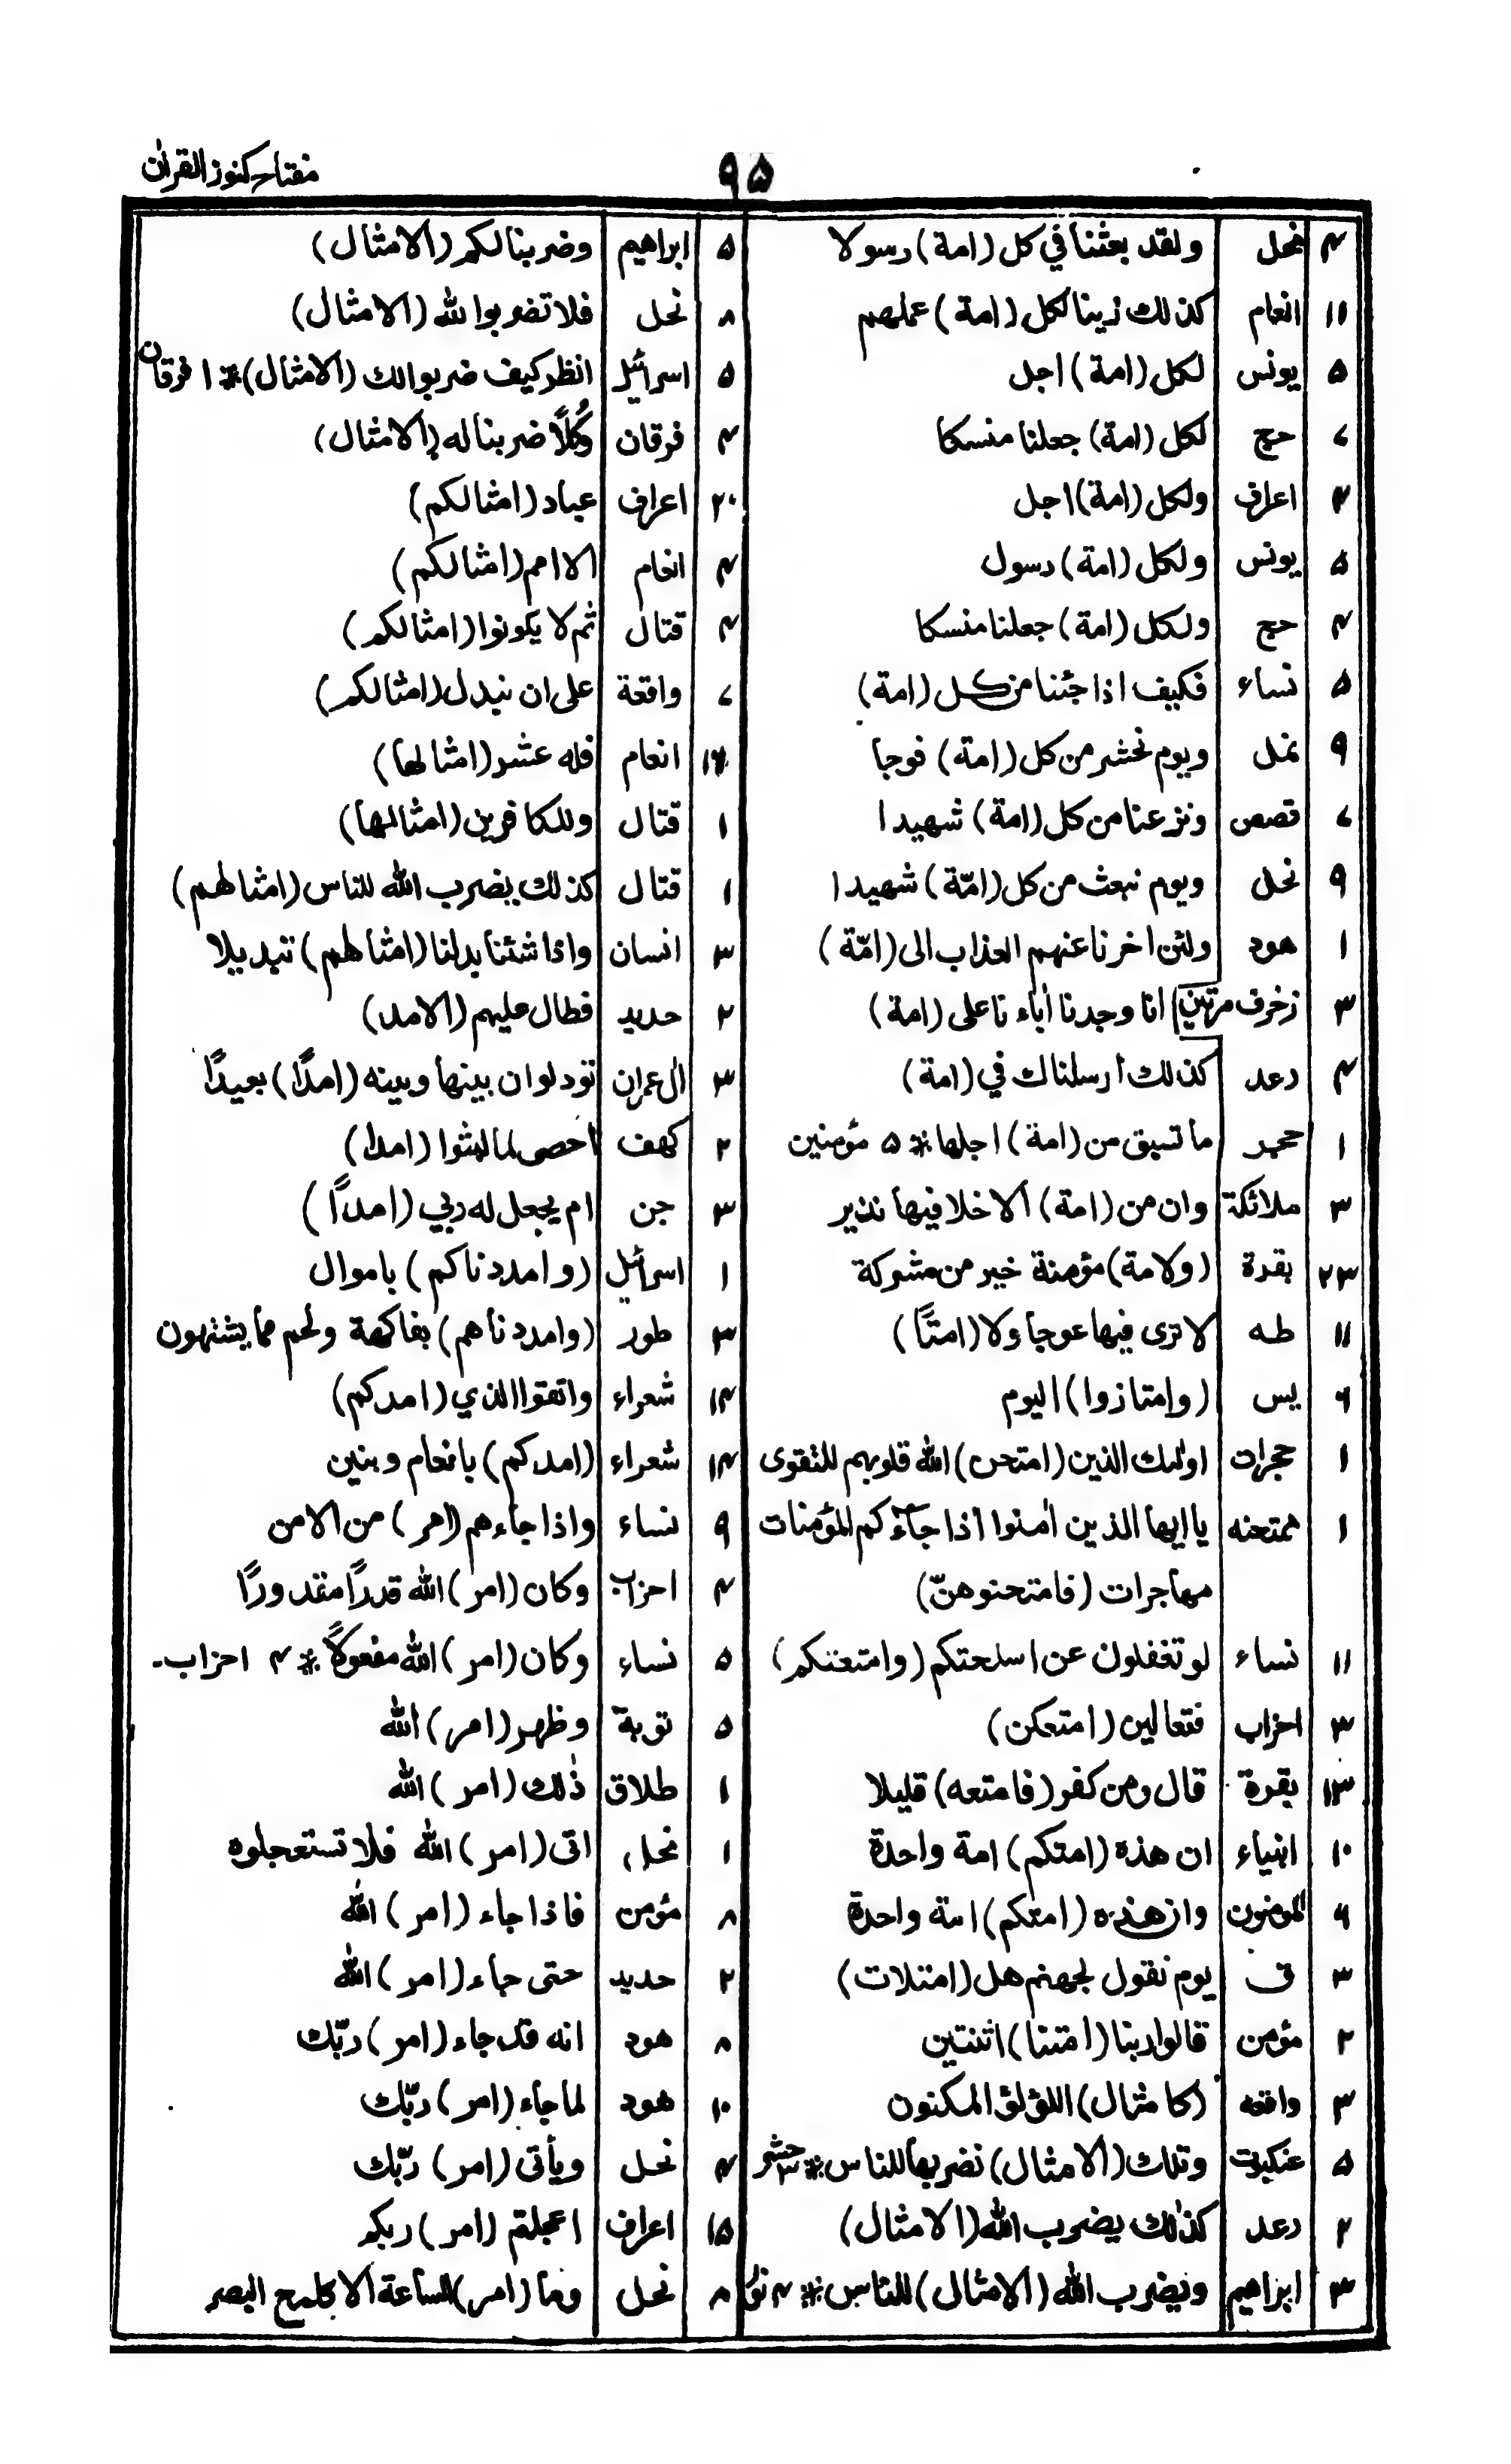 ٩٥
مفتاح كنوز القرآن
٤ نحل ولقد بعثنا في كل (امة) رسولا
١١ انعام كذلك زينا لكل (امة) عملهم
٥ يونس لكل (امة) اجل
٧ حج لكل (امة) جعلنا منسكا
٤ اعراف ولكل (امة) اجل
٥ يونس ولكل (امة) رسول
٤ حج ولكل (امة) جعلنا منسكا
٥ نساء فكيف اذا جئنا من كل (امة)
٩ نمل ويوم نحشر من كل (امة) فوجا
٧ قصص ونزعنا من كل (امة) شهيدا
٩ نحل ويوم نبعث من كل (امّة) شهيدا
١ هود ولئن اخرنا عنهم العذاب الى (امّة)
٣ زخرف مرتين انا وجدنا اباء نا على (امة)
٤ رعد كذلك ارسلناك في (امة)
١ حجر ما تسبق من (امة) اجلها * ٥ مؤمنين
٣ ملائكة وان من (امة) الا خلا فيها نذير
٢٣ بقرة (ولامة) مؤمنة خير من مشركة
١١ طه لا ترى فيها عوجا ولا (امتًا)
٦ يس (وامتازوا) اليوم
١ حجرات اولئك الذين (امتحن) الله قلوبهم للتقوى
١ ممتحنه يا ايها الذين اٰمنوا اذا جآءكم المؤمنات
مهاجرات (فامتحنوهنّ)
١١ نساء لو تغفلون عن اسلحتكم (وامتعتكم)
٣ احزاب فتعالين (امتعكن)
١٣ بقرة قال ومن كفر (فامتعه) قليلا
١٠ انبياء ان هذه (امتكم) امة واحدة
٦ المومنون وان هذه (امتكم) امة واحدة
٣ ق يوم نقول لجهنم هل (امتلات)
٢ مؤمن قالوا ربنا (امتنا) اثنتين
٣ واقعه (كامثال) اللؤلؤ المكنون
٥ عنكبوت وتلك (الامثال) نضربها للناس * ٣ حشر
٢ رعد كذلك يضرب الله (الامثال)
٣ ابراهيم ويضرب الله (الامثال) للناس * ٤ نور
٥ ابراهيم وضربنا لكم (الامثال)
٨ نحل فلا تضربوا لله (الامثال)
٥ اسرائيل انظر كيف ضربوا لك (الامثال) * ١ فرقان
٤ فرقان وكُلاً ضربنا له (الامثال)
٢٠ اعراف عباد (امثالكم)
٤ انعام الا امم (امثالكم)
٤ قتال ثم لا يكونوا (امثالكم)
٧ واقعة على ان نبدل (امثالكم)
انعام فله عشر (امثالها)
١ قتال وللكافرين (امثالها)
١ قتال كذلك يضرب الله للناس (امثالهم)
٣ انسان واذا شئنا بدلنا (امثالهم) تبديلا
٢ حديد فطال عليهم (الامد)
٣ ال عمران تود لو ان بينها وبينه (امدًا) بعيدًا
٢ كهف احصى لما لبثوا (امدا)
٣ جن ام يجعل له ربي (امدًا)
١ اسرائيل (وامددناكم) باموال
٣ طور (وامددناهم) بفاكهة ولحم مما يشتهون
١٤ شعراء واتقوا الذي (امدكم)
١٤ شعراء (امدكم) بانعام وبنين
٩ نساء واذا جاءهم (امر) من الامن
٤ احزاب وكان (امر) الله قدرًا مقدورًا
٥ نساء وكان (امر) الله مفعولاً * ٤ احزاب۔
٥ توبة وظهر (امر) الله
١ طلاق ذٰلك (امر) الله
١ نحل اتى (امر) الله فلا تستعجلوه
٨ مؤمن فاذا جاء (امر) الله
٢ حديد حتى جاء (امر) الله
٨ هود انه قد جاء (امر) ربّك
١٠ هود لما جاء (امر) ربّك
٤ نحل ويأتى (امر) ربّك
١٥ اعراف اعجلتم (امر) ربكم
٨ نحل وما (امر) الساعة الا كلمح البصر